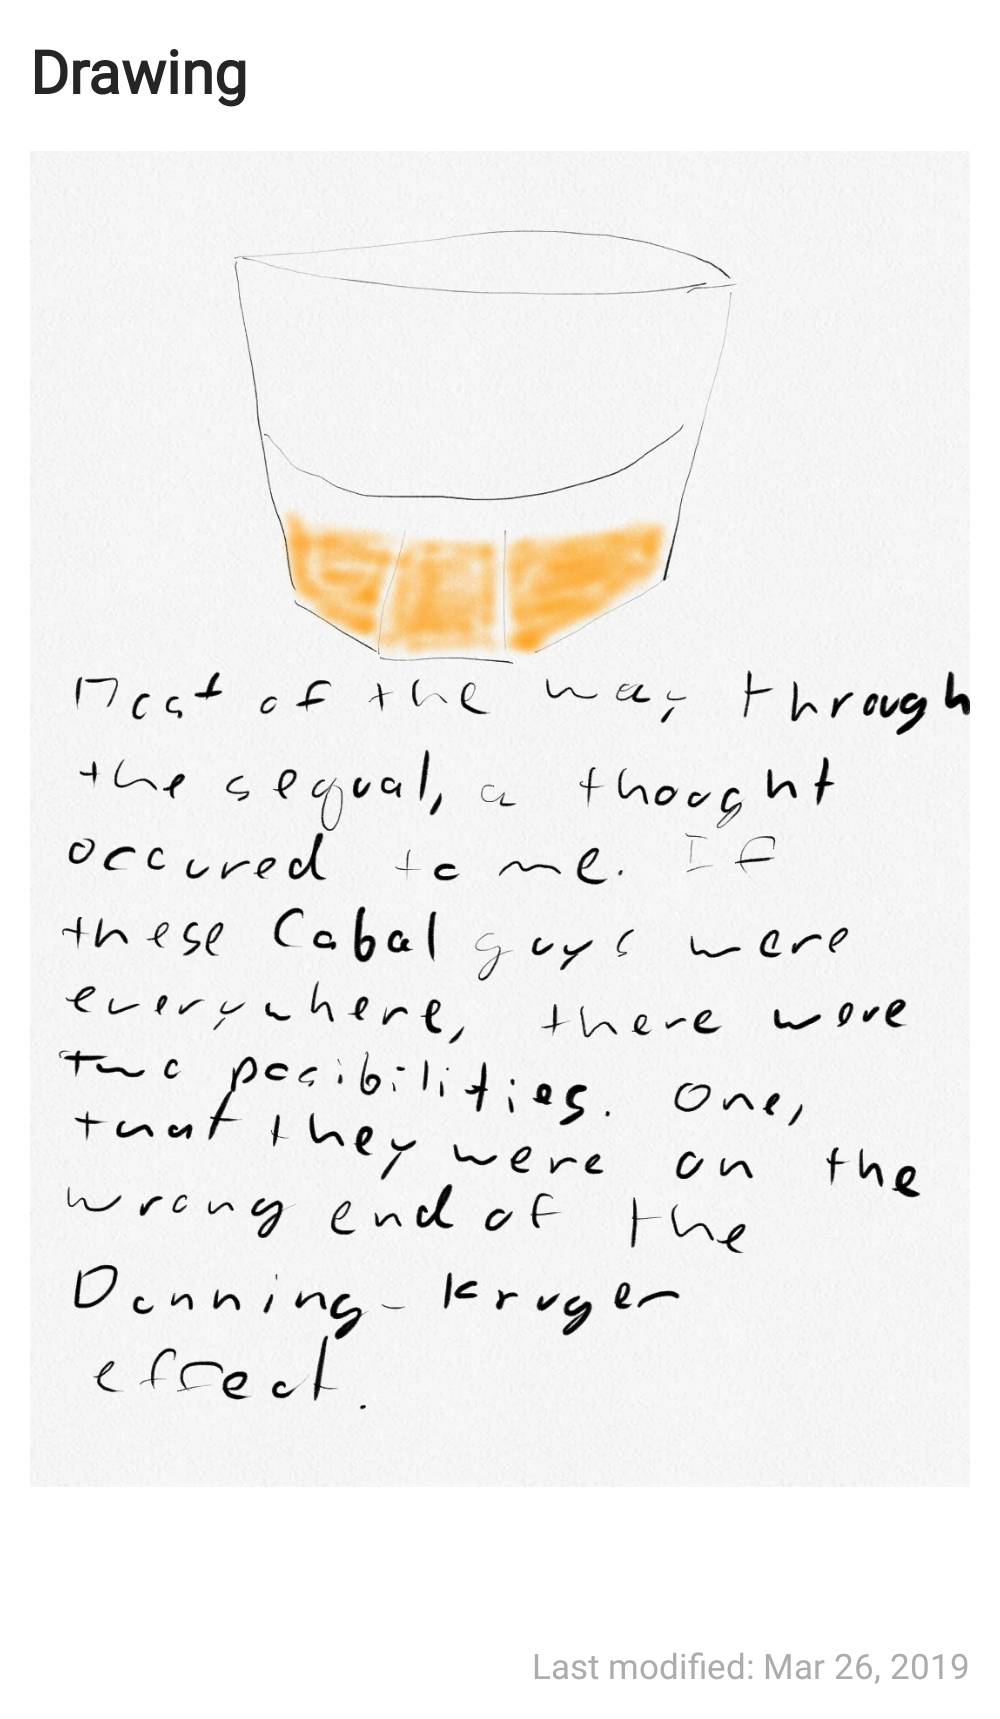 Drawing
Most of the way through
the sequal, a thought
occured to me. If
these Cabal guys were
everywhere, there were
two posibilities. One,
that they were on the
wrong end of the
Dunning-Kruger
effect.
Last modified: Mar 26, 2019